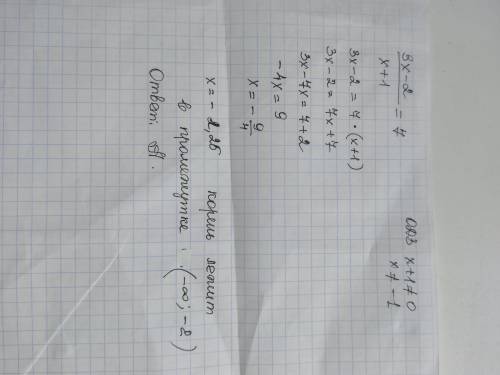 3x-2/x+1 = 7 ОДЗ x+1≠0
3x-2 = 7·(x+1) x≠-1
3x-2=7x+7
3x-7x=7+2
-4x=9
x=-9/4
x=-2,25 корень лежит
в промежутке: (-∞;-2)
Ответ: А.